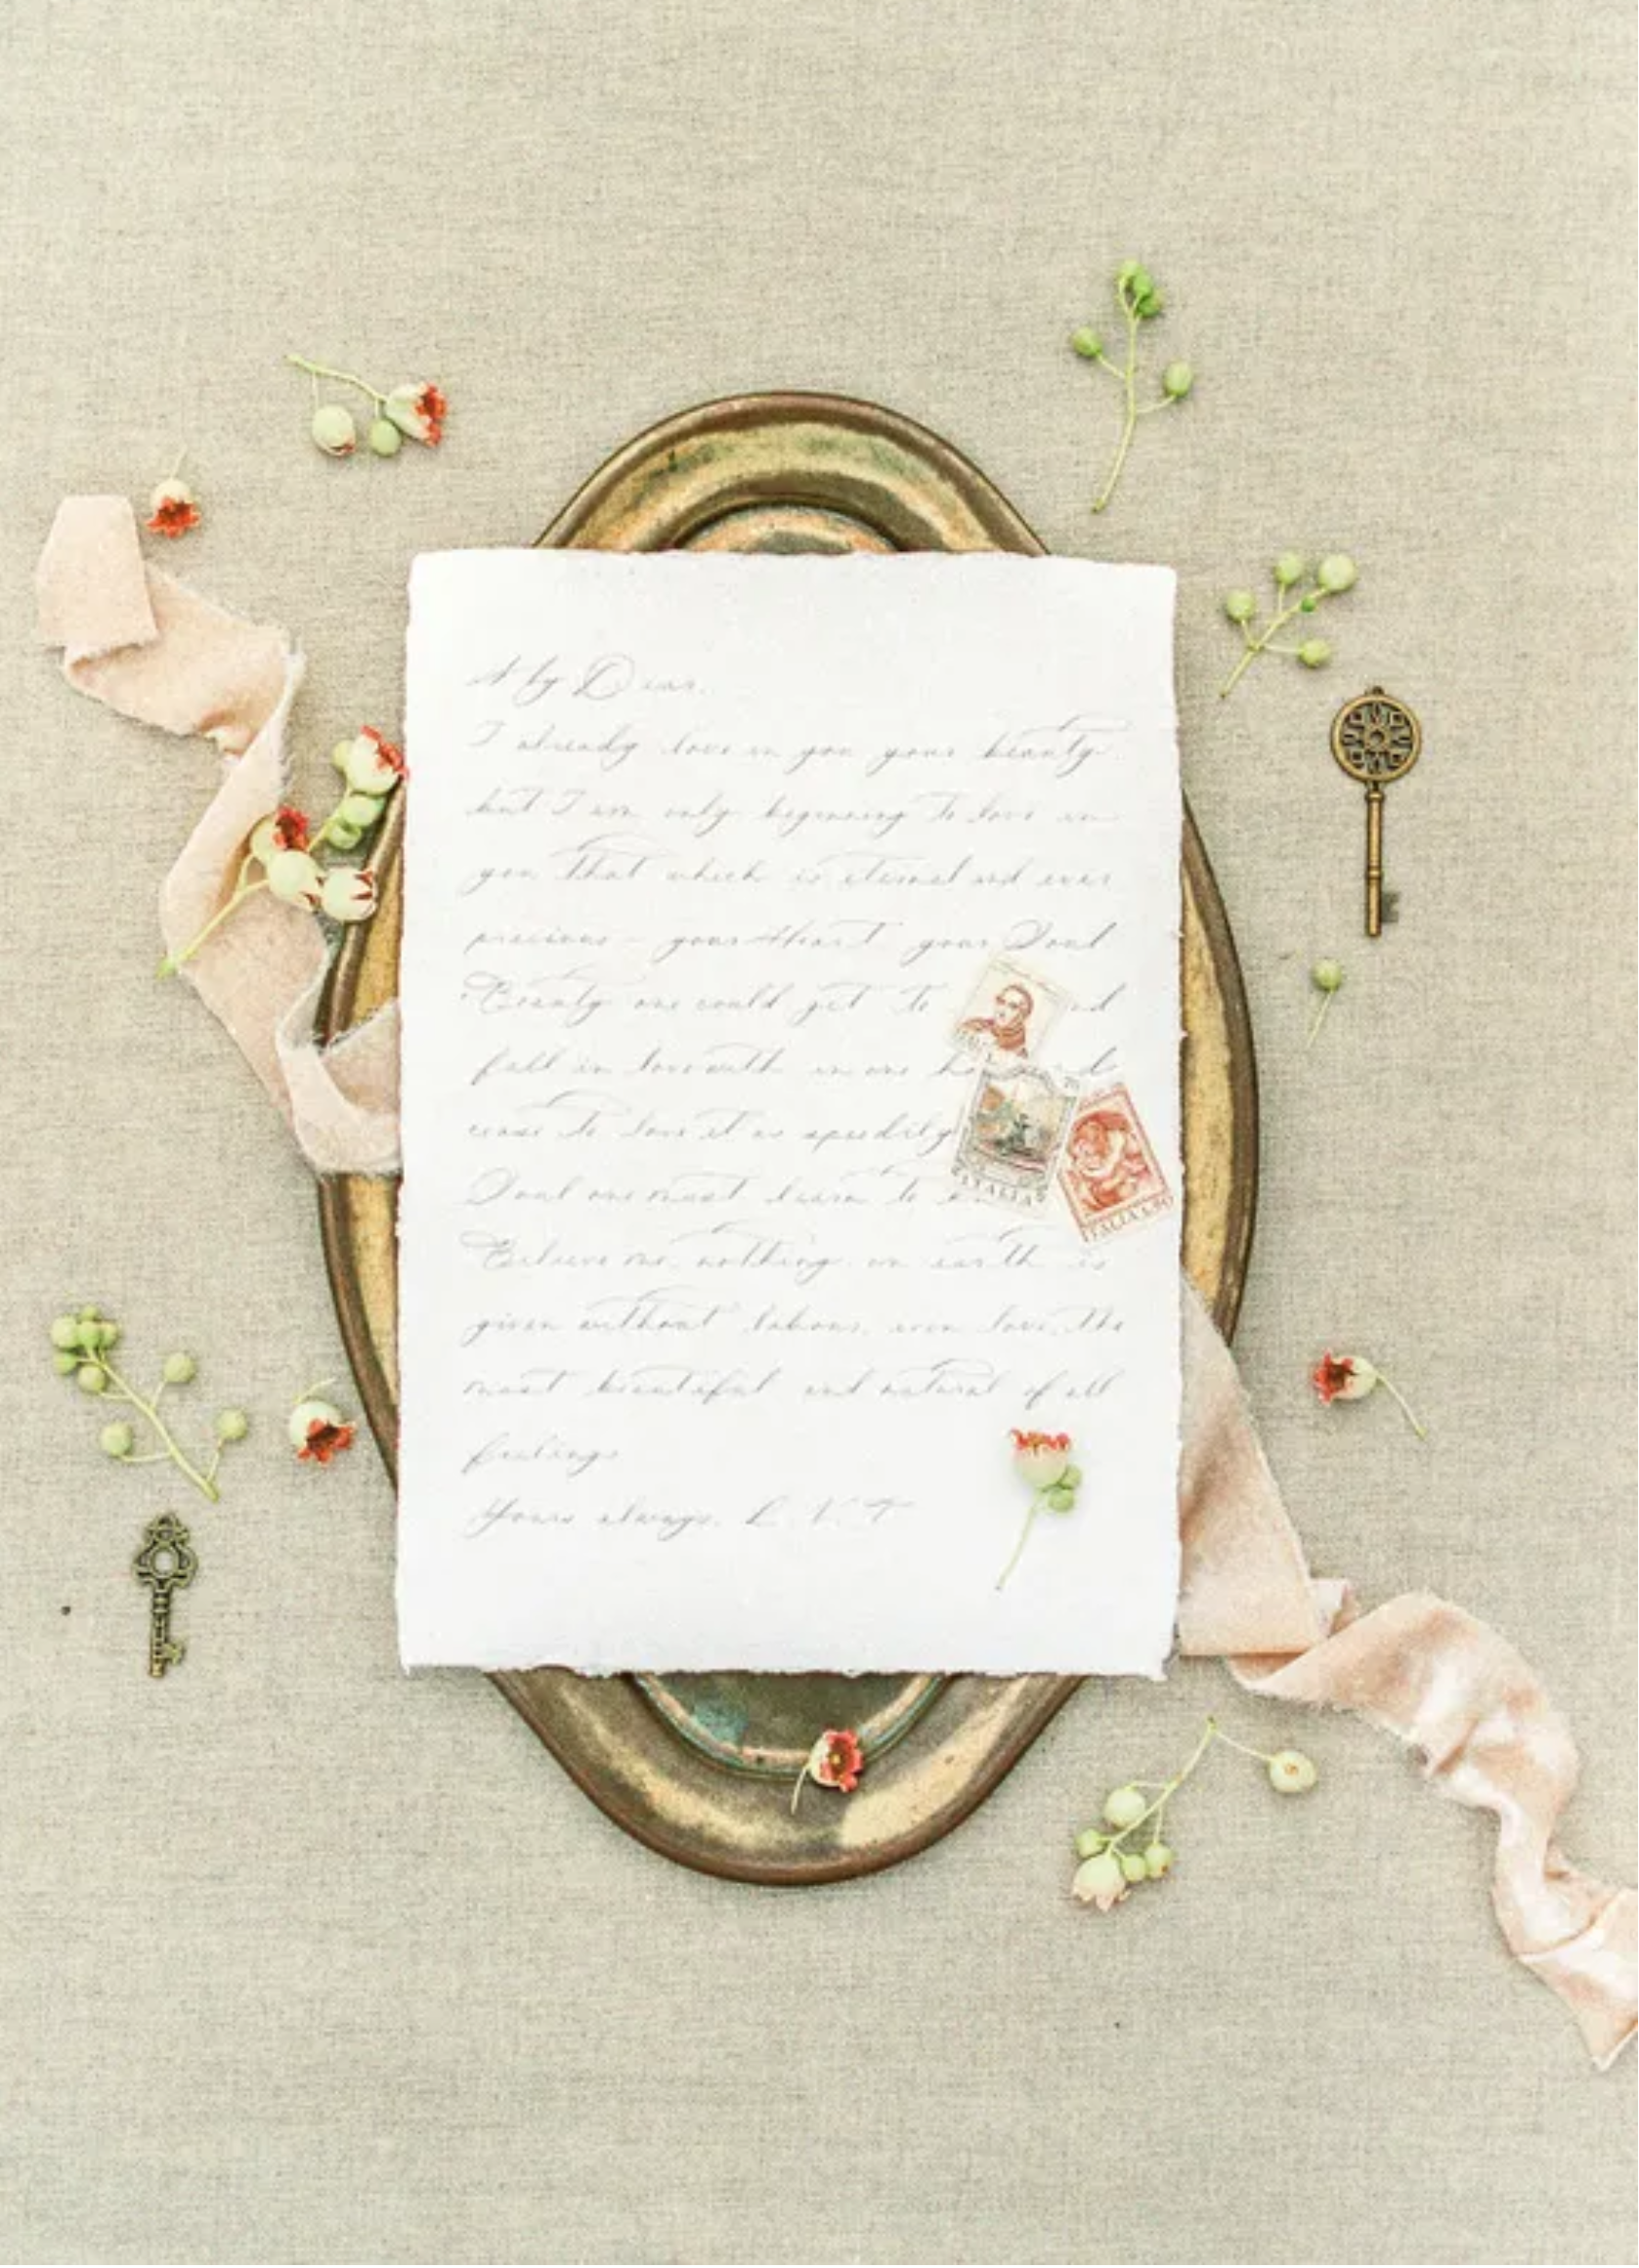 My Dear,
I already love in you your beauty,
but I am only beginning to love in
you that which is eternal and ever
precious – your Heart, your Soul.
Beauty one could get to
fall in love with in one
cease to love it as speedily
Soul one must learn to
Believe me, nothing on earth is
given without labour, even love, the
most beautiful and natural of all
feelings
Yours always, L. N. T
ITALIA
ITALIA